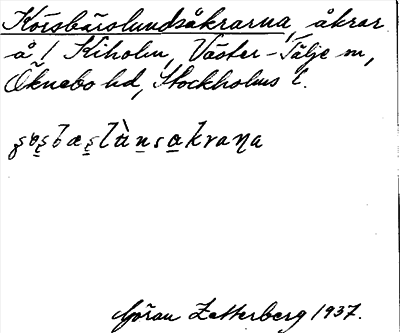 Körsbärslundsåkrarna, åkrar
å / Kiholm, Väster-Tälje sn,
Öknebo hd, Stockholms l.
Göran Zetterberg 1937.